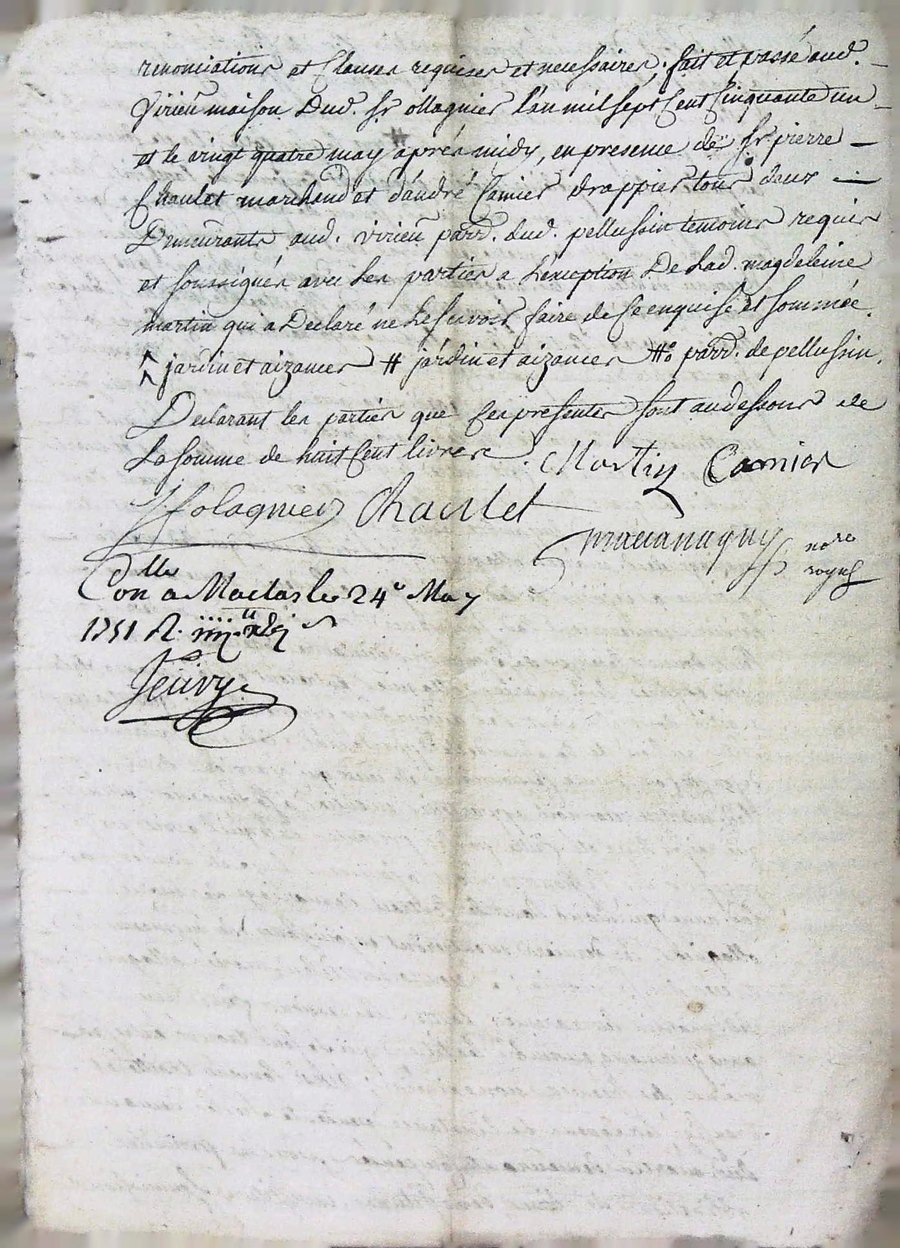 renonciations et Clauses requises et necessaires. fait et passé aud.
Virieu maison Dud. Sr ollagnier l'an mil sept Cent Cinquante un
et le vingt quatre may après midy, en presence de Sr pierre
Chaulet marchand et d'andré Camier drappier tous deux
Demeurants aud. virieu parr. dud. pellussin temoins requis
et soussignés avec Les parties a L'exception De Lad. magdeleine
martin qui a Declaré ne Le scavoir faire de Ce enquise et sommée.
jardin et aizances # jardin et aizances #o parr. de pellussin.
Declarant les parties que Ces presentes sont audessous de
La somme de huit Cent livres. Martin Camier
Jfolagnier Chaulet
no.re
royal
Con.dlle a Maclas le 24e May
1751 R.